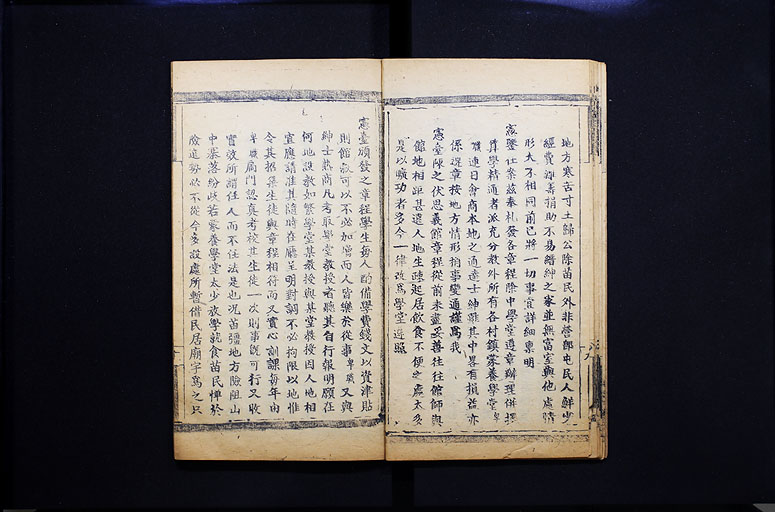 地方寒苦寸土歸公除苗民外非營即屯民人鮮少
經費難善捐助不易縉紳之家並無富室與他處情
形大不相同前已將一切事宜詳細稟明
憲鑒在案茲奉札發各章程除中學堂遵章辦理併擇
算學精通者派充分教外所有各村鎮蒙養學堂卑
職連日會商本地之通達士紳雖其中畧有損益亦
係遵章按地方情形捐事變通謹為我
憲臺陳之伏思義館章程從前未盡妥善往往館師與
館地相距甚遠人地生疎起居飲食不便之處太多
是以曠功者多今一律改為學堂遵照
憲臺頒發之章程學生每人酌備學費錢文以資津貼
則館穀可以不必加增而人皆樂於從事卑職又與
紳士熟商凡考取學堂教授者聽其自行報明願在
何地設教如繁學堂某教授與某堂教授因人地相
宜應請准其隨時在廳呈明對調不必拘限以地惟
令其招集生徒與章程相符而又實心訓課每年由
卑職衙門認真考校其生徒一次則事既可行又收
實效所謂任人而不任法是也況苗疆地方險阻山
中寨落紛歧若蒙養學堂太少放學就食苗民憚於
險遠勢必不從今多設處所暫借民居廟宇為之只